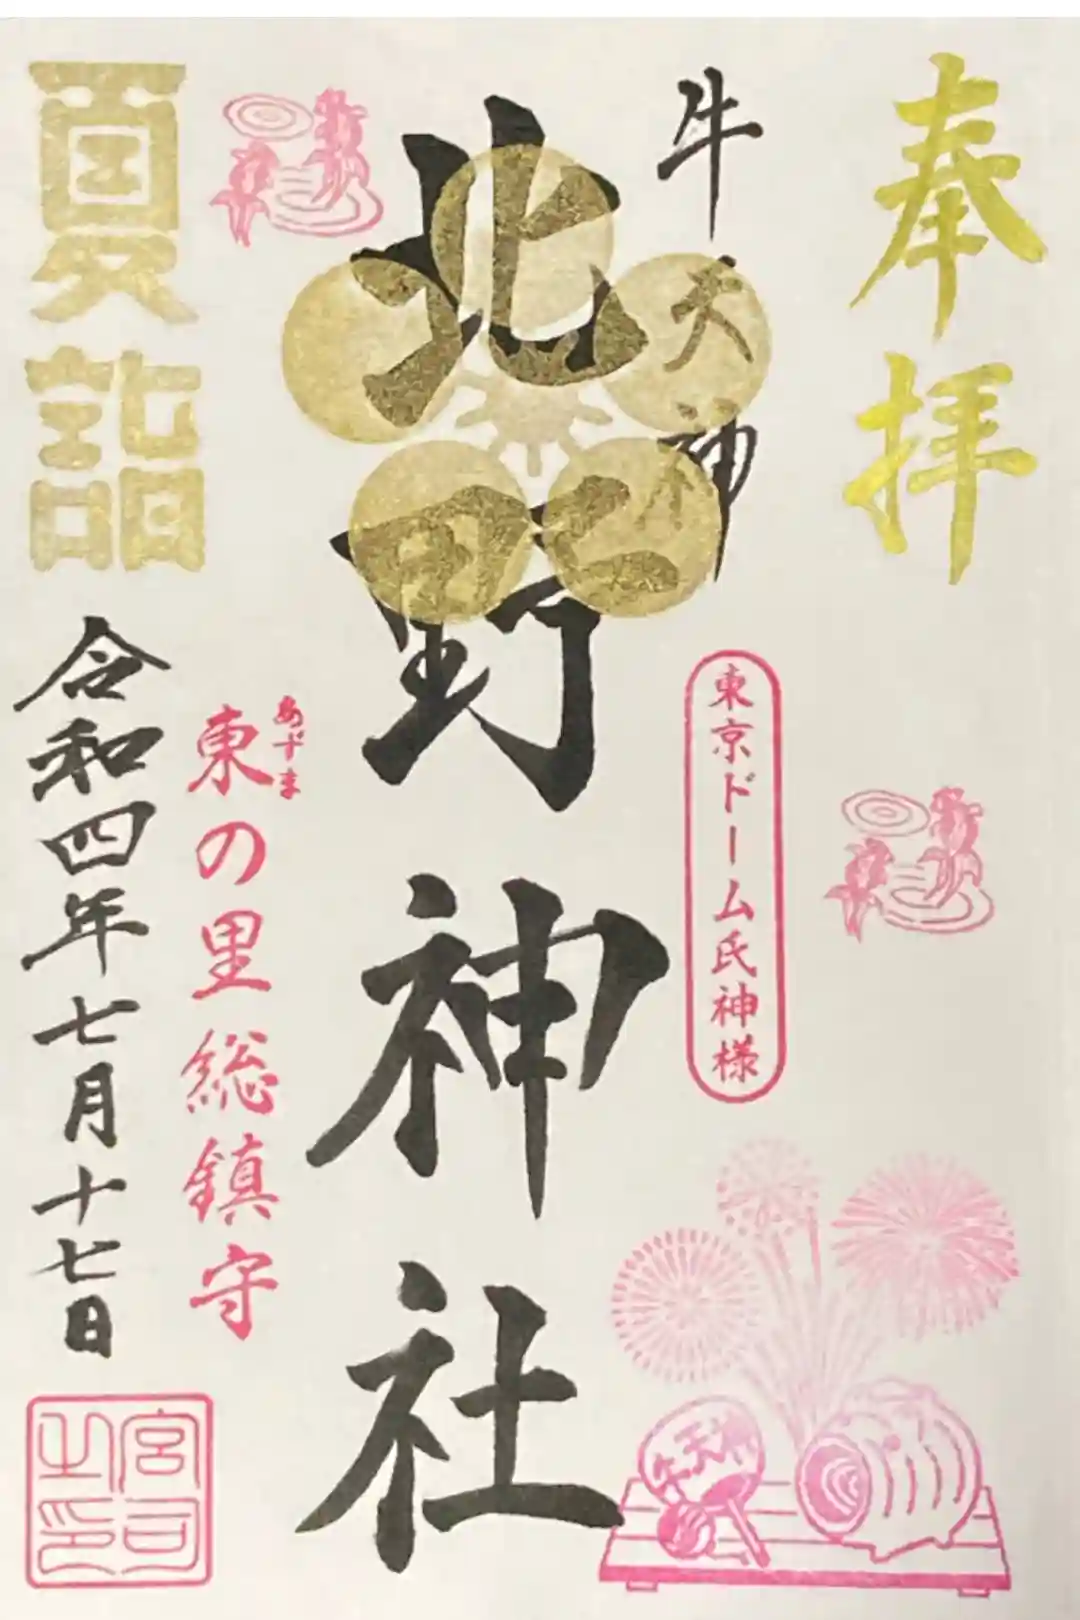 奉拝
牛天神
東京ドーム氏神様
牛天神
北野神社
あづま
東の里総鎮守
夏詣
令和四年七月十七日
宮司之印